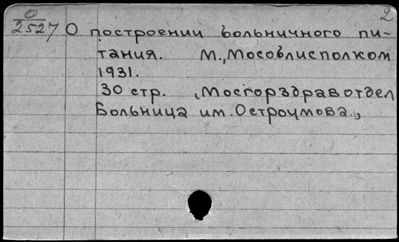 2
О
2527
О построении больничного пи-
тания. М., Мособлисполком
1931.
30 стр. (Мосгорздравотдел
Больница им. Остроумова.)